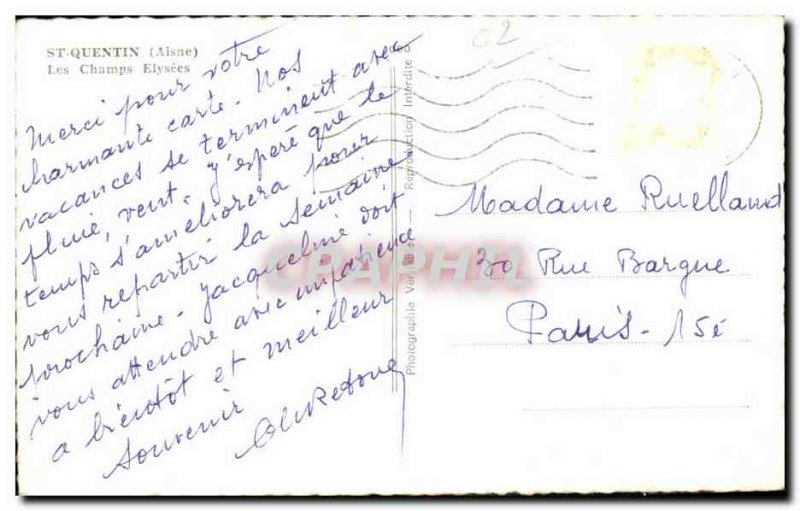 ST-QUENTIN (Aisne)
Les Champs Elysées
Merci pour votre
charmante carte. Nos
vacances se terminent avec
pluie, vent. J'espère que le
temps s'améliorera pour
vous repartir la semaine
prochaine. Jacqueline doit
vous attendre avec impatience
a bientôt et meilleur
souvenir
02
Photographie Véritable — Reproduction Interdite
Madame Ruelland
30 Rue Bargue
Paris - 15è
CRAPHIL